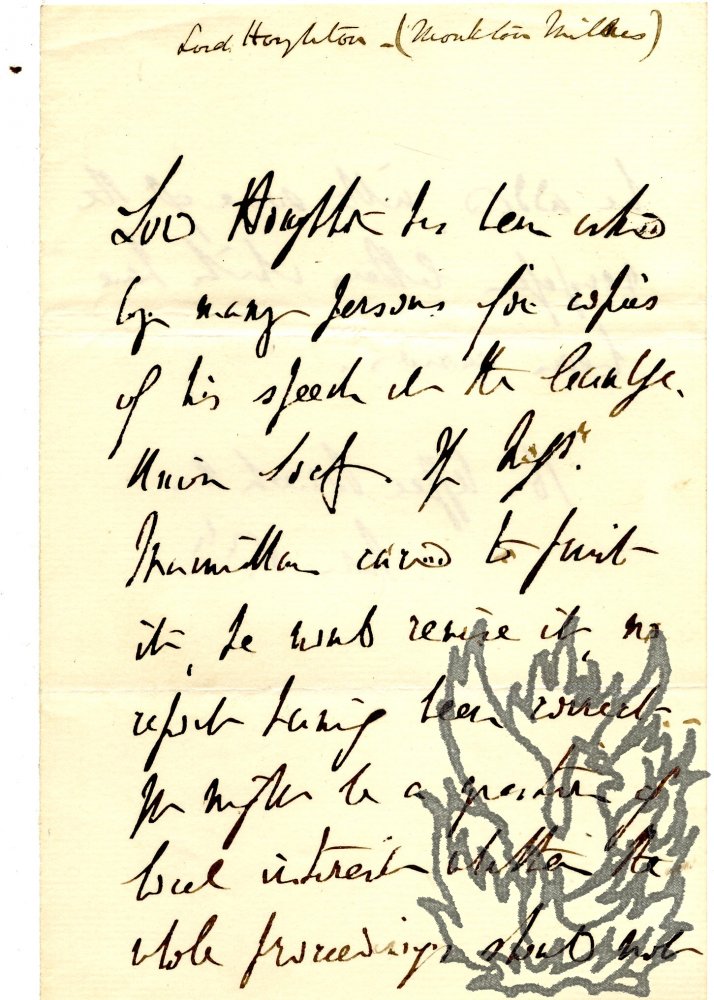 Lord Houghton - (Monkton Milnes)
Lord Houghton has been asked
by many persons for copies
of his speech at the Cambge.
Union Socy. If Messrs.
Macmillan cared to print
it, he would revise it, no
report having been correct.
It might be a question of
local interest whether the
whole proceedings should not